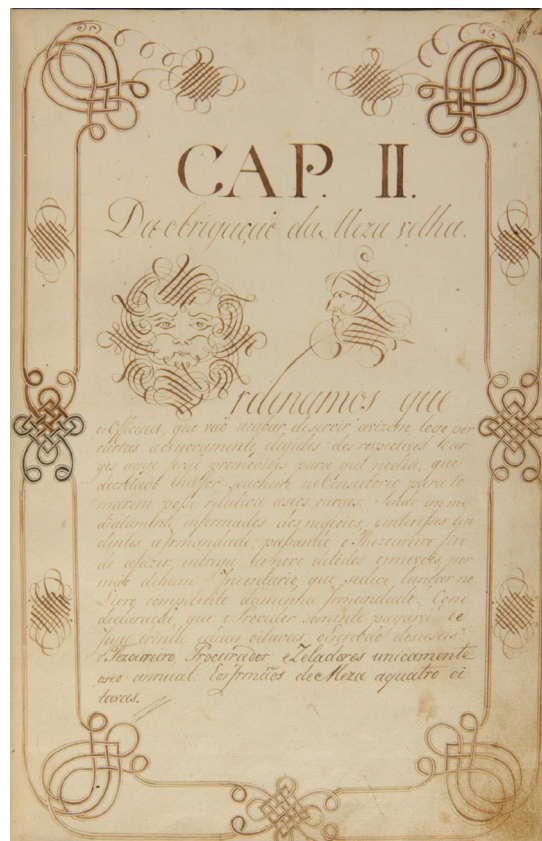 CAP. II.
Da obrigaçaõ da Meza velha.
Ordenamos que
os Officiaes, que vaõ acabar, de servir avizem logo por
cartas aos novamente elegidos dos respectivos Car
gos a que forem promovidos para que no dia, que
destinado lhes for se achem no Consistorio para to
marem posse relativa a seos cargos. Sendo imme
diatamente informados dos negocios, e interesses
dentes a Irmandade; passando o Thezoureiro fin
do a fazer, entrega ao novo de todos os moveis por
maõ de hum Inventario, que se deve lançar no
Livro competente da mesma Irmandade. Com
declaraçaõ, que o Provedor somente pagará de
Joya trinta e duas oitavas,
o Tezoureiro, Procurador, e Zeladores unicamente
o seo annual. E os Irmãos de Meza a quatro oi
tavas.